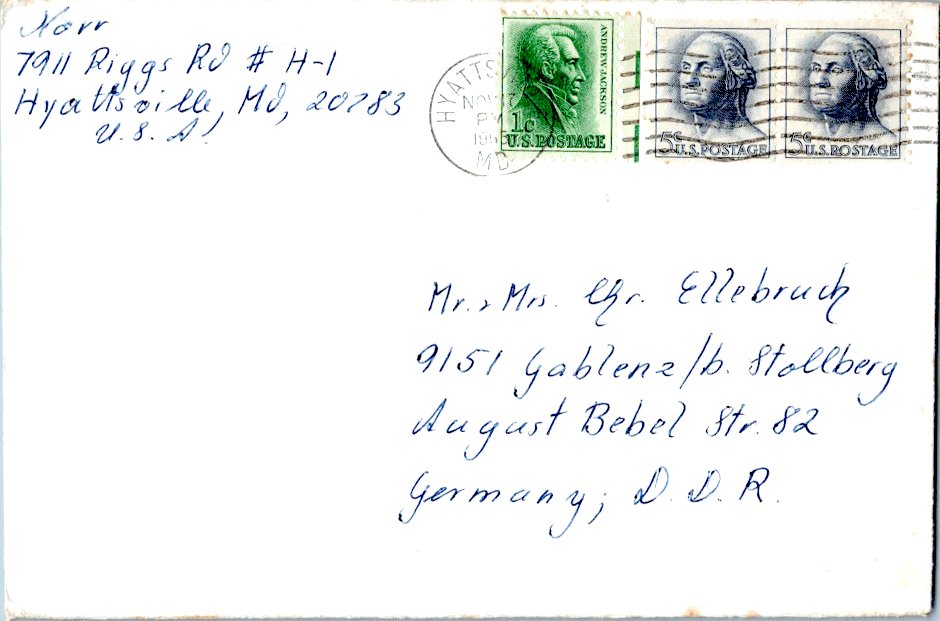 Norr
7911 Riggs Rd # H-1
Hyattsville, Md, 20783
U.S.A.
HYATTSVILLE
NOV
PM
MD
ANDREW JACKSON
1c
U.S. POSTAGE
5c U.S. POSTAGE
5c U.S. POSTAGE
Mr. & Mrs. Chr. Ellebruch
9151 Gablenz/b. Stollberg
August Bebel Str. 82
Germany; D.D.R.